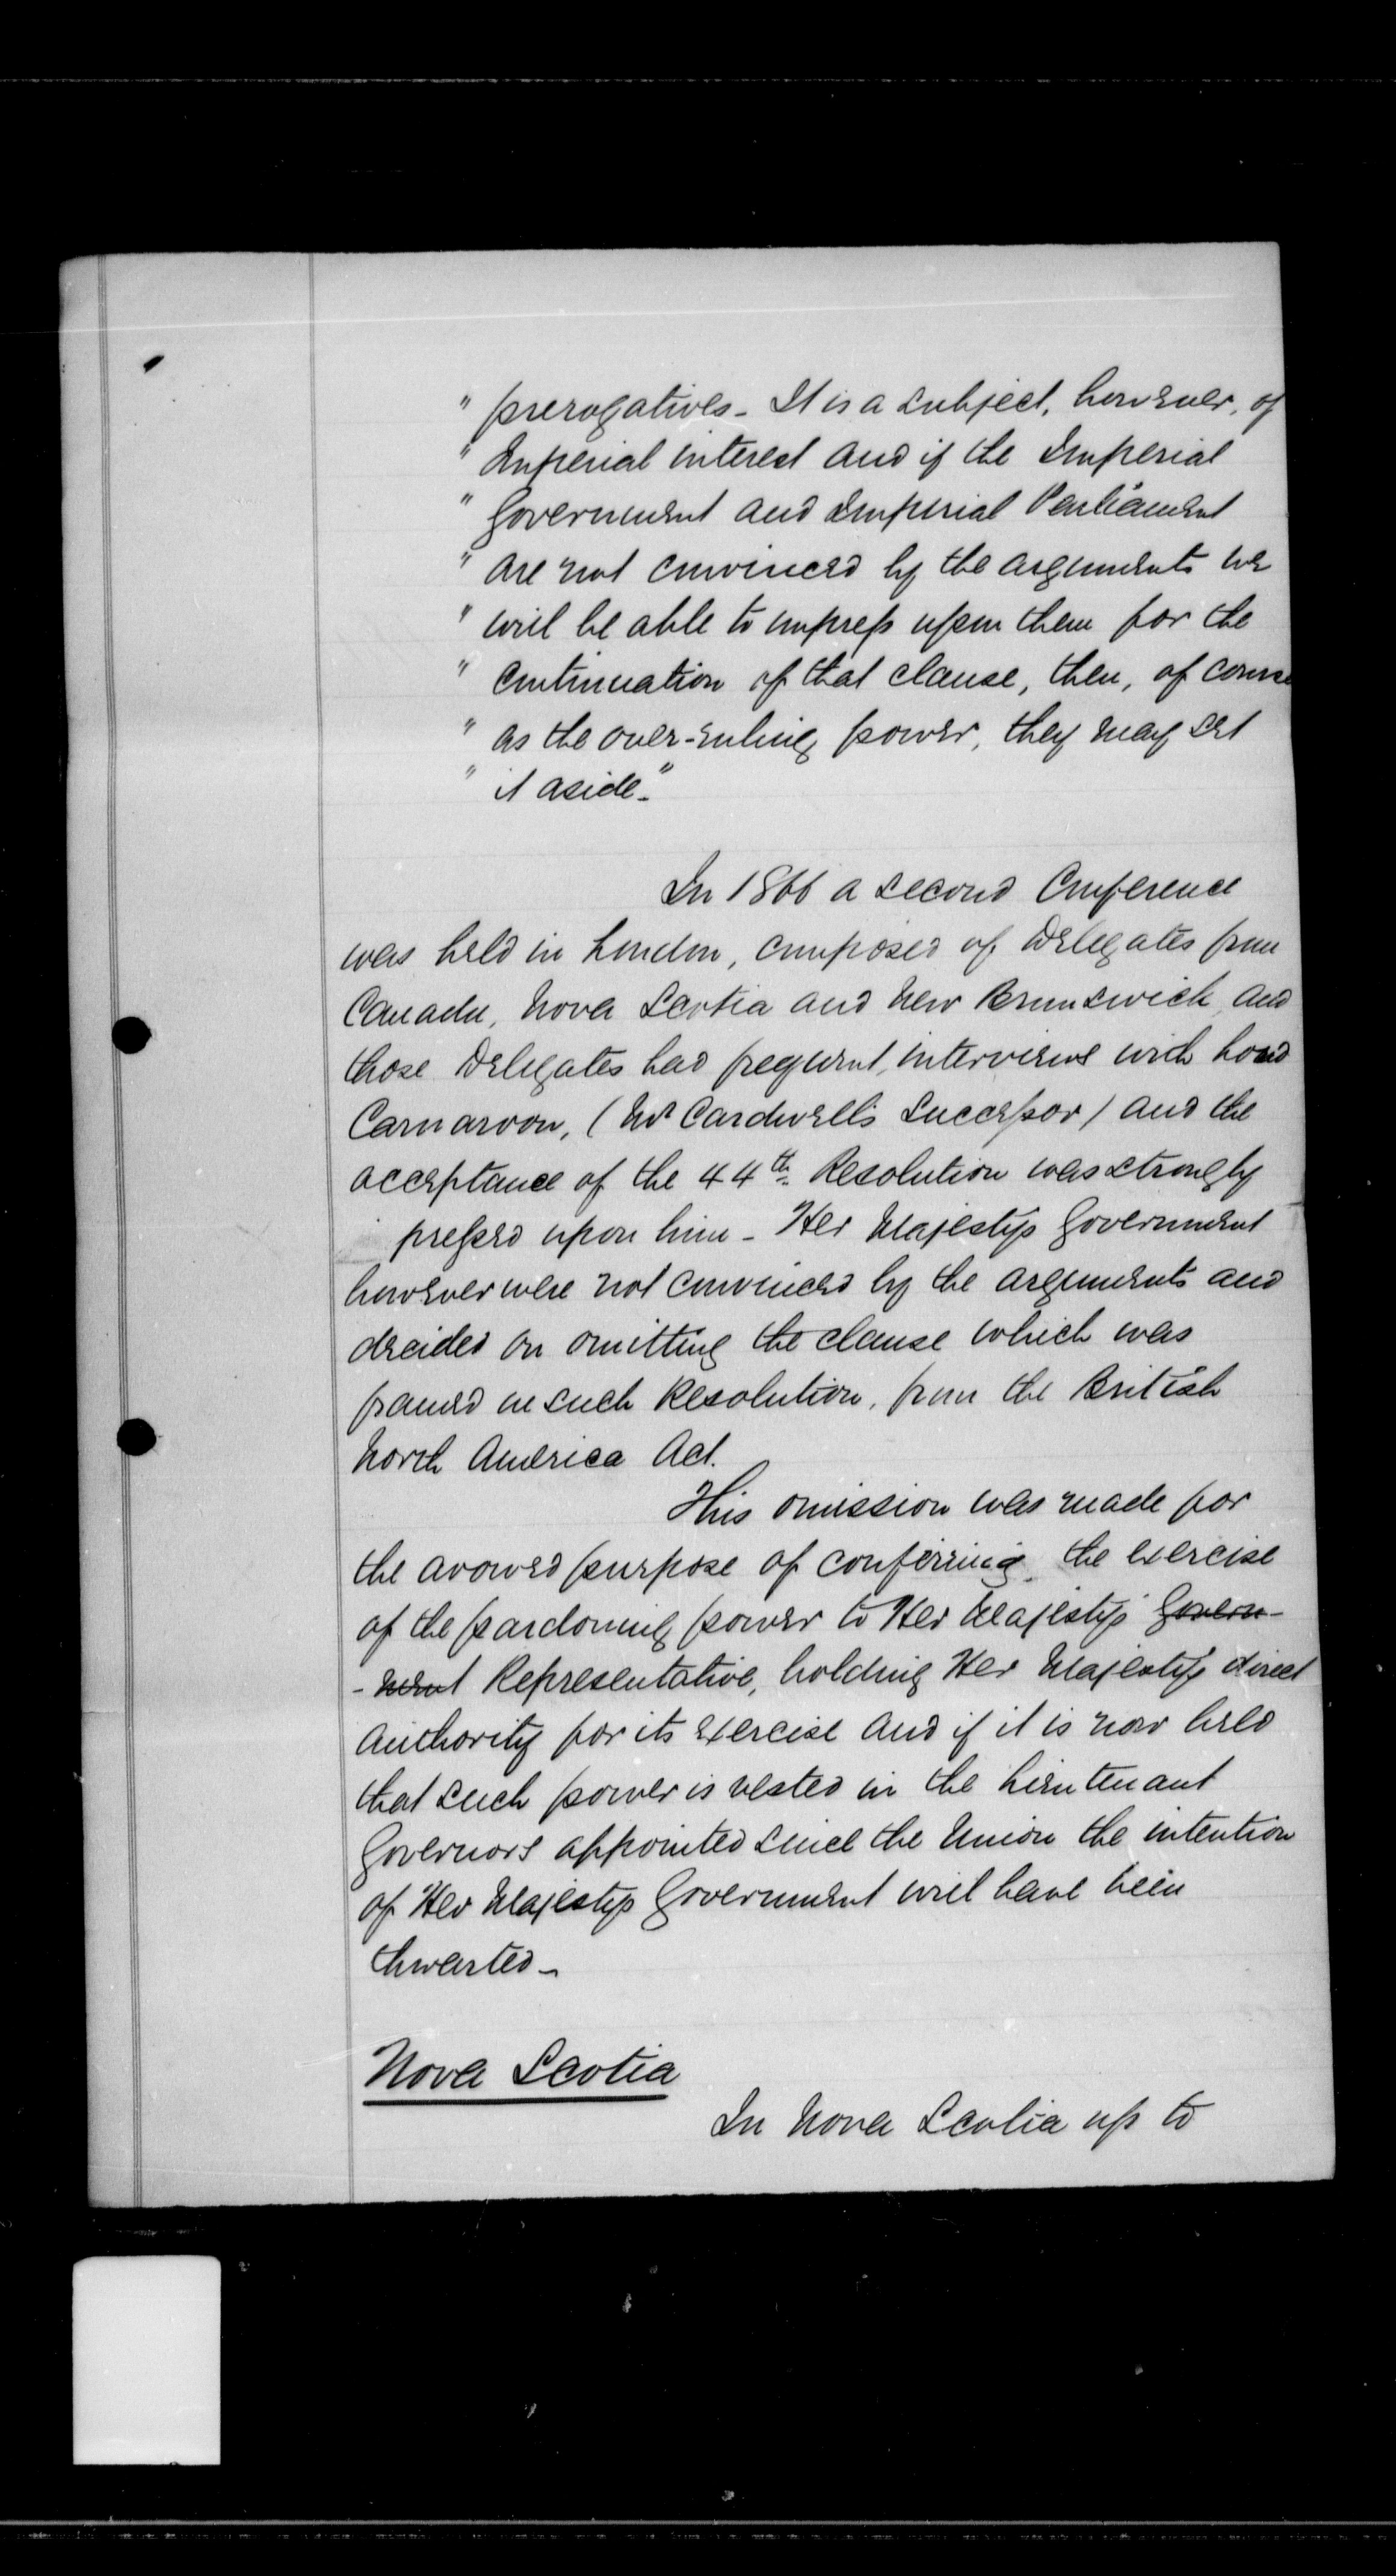 " prerogatives - It is a subject, however, of
" Imperial interest and if the Imperial
" Government and Imperial Parliament
" are not convinced by the arguments we
" will be able to impress upon them for the
" continuation of that clause, then, of course
" as the over-ruling power, they may set
" it aside."
In 1866 a second Conference
was held in London, composed of Delegates from
Canada, Nova Scotia and New Brunswick, and
those Delegates had frequent interviews with Lord
Carnarvon, (Mr Cardwell's Successor) and the
acceptance of the 44th Resolution was strongly
pressed upon him - Her Majesty's Government
however were not convinced by the arguments and
decided on omitting the clause which was
framed in such Resolution, from the British
North America Act.
This omission was made for
the avowed purpose of conferring the exercise
of the pardoning power to Her Majesty's Govern-
-ment Representative, holding Her Majesty's direct
authority for its exercise and if it is now held
that such power is vested in the Lieutenant
Governors appointed since the Union the intention
of Her Majesty's Government will have been
thwarted -
Nova Scotia
In Nova Scotia up to